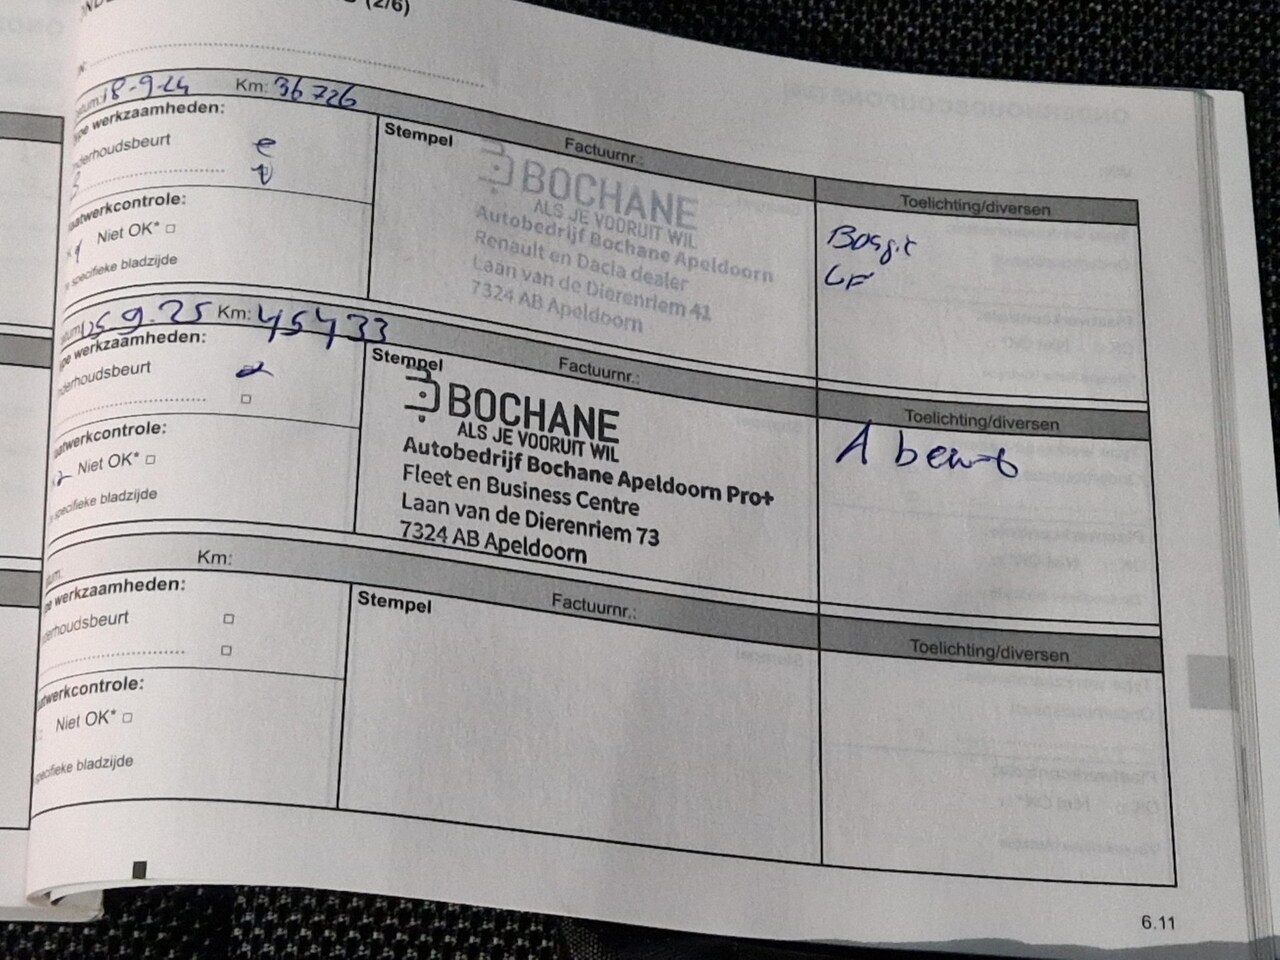 (2/6)
18-9-24 Km: 36726
werkzaamheden:
Stempel Factuurnr.:
Toelichting/diversen
BOCHANE
ALS JE VOORUIT WIL
Autobedrijf Bochane Apeldoorn
Renault en Dacia dealer
Laan van de Dierenriem 41
7324 AB Apeldoorn
Niet OK*
specifieke bladzijde
LF
9.25 Km: 45433
werkzaamheden:
Stempel Factuurnr.:
Toelichting/diversen
BOCHANE
ALS JE VOORUIT WIL
Autobedrijf Bochane Apeldoorn Pro+
Fleet en Business Centre
Laan van de Dierenriem 73
7324 AB Apeldoorn
Niet OK*
specifieke bladzijde
A
Km:
werkzaamheden:
Stempel Factuurnr.:
Toelichting/diversen
Niet OK*
bladzijde
6.11